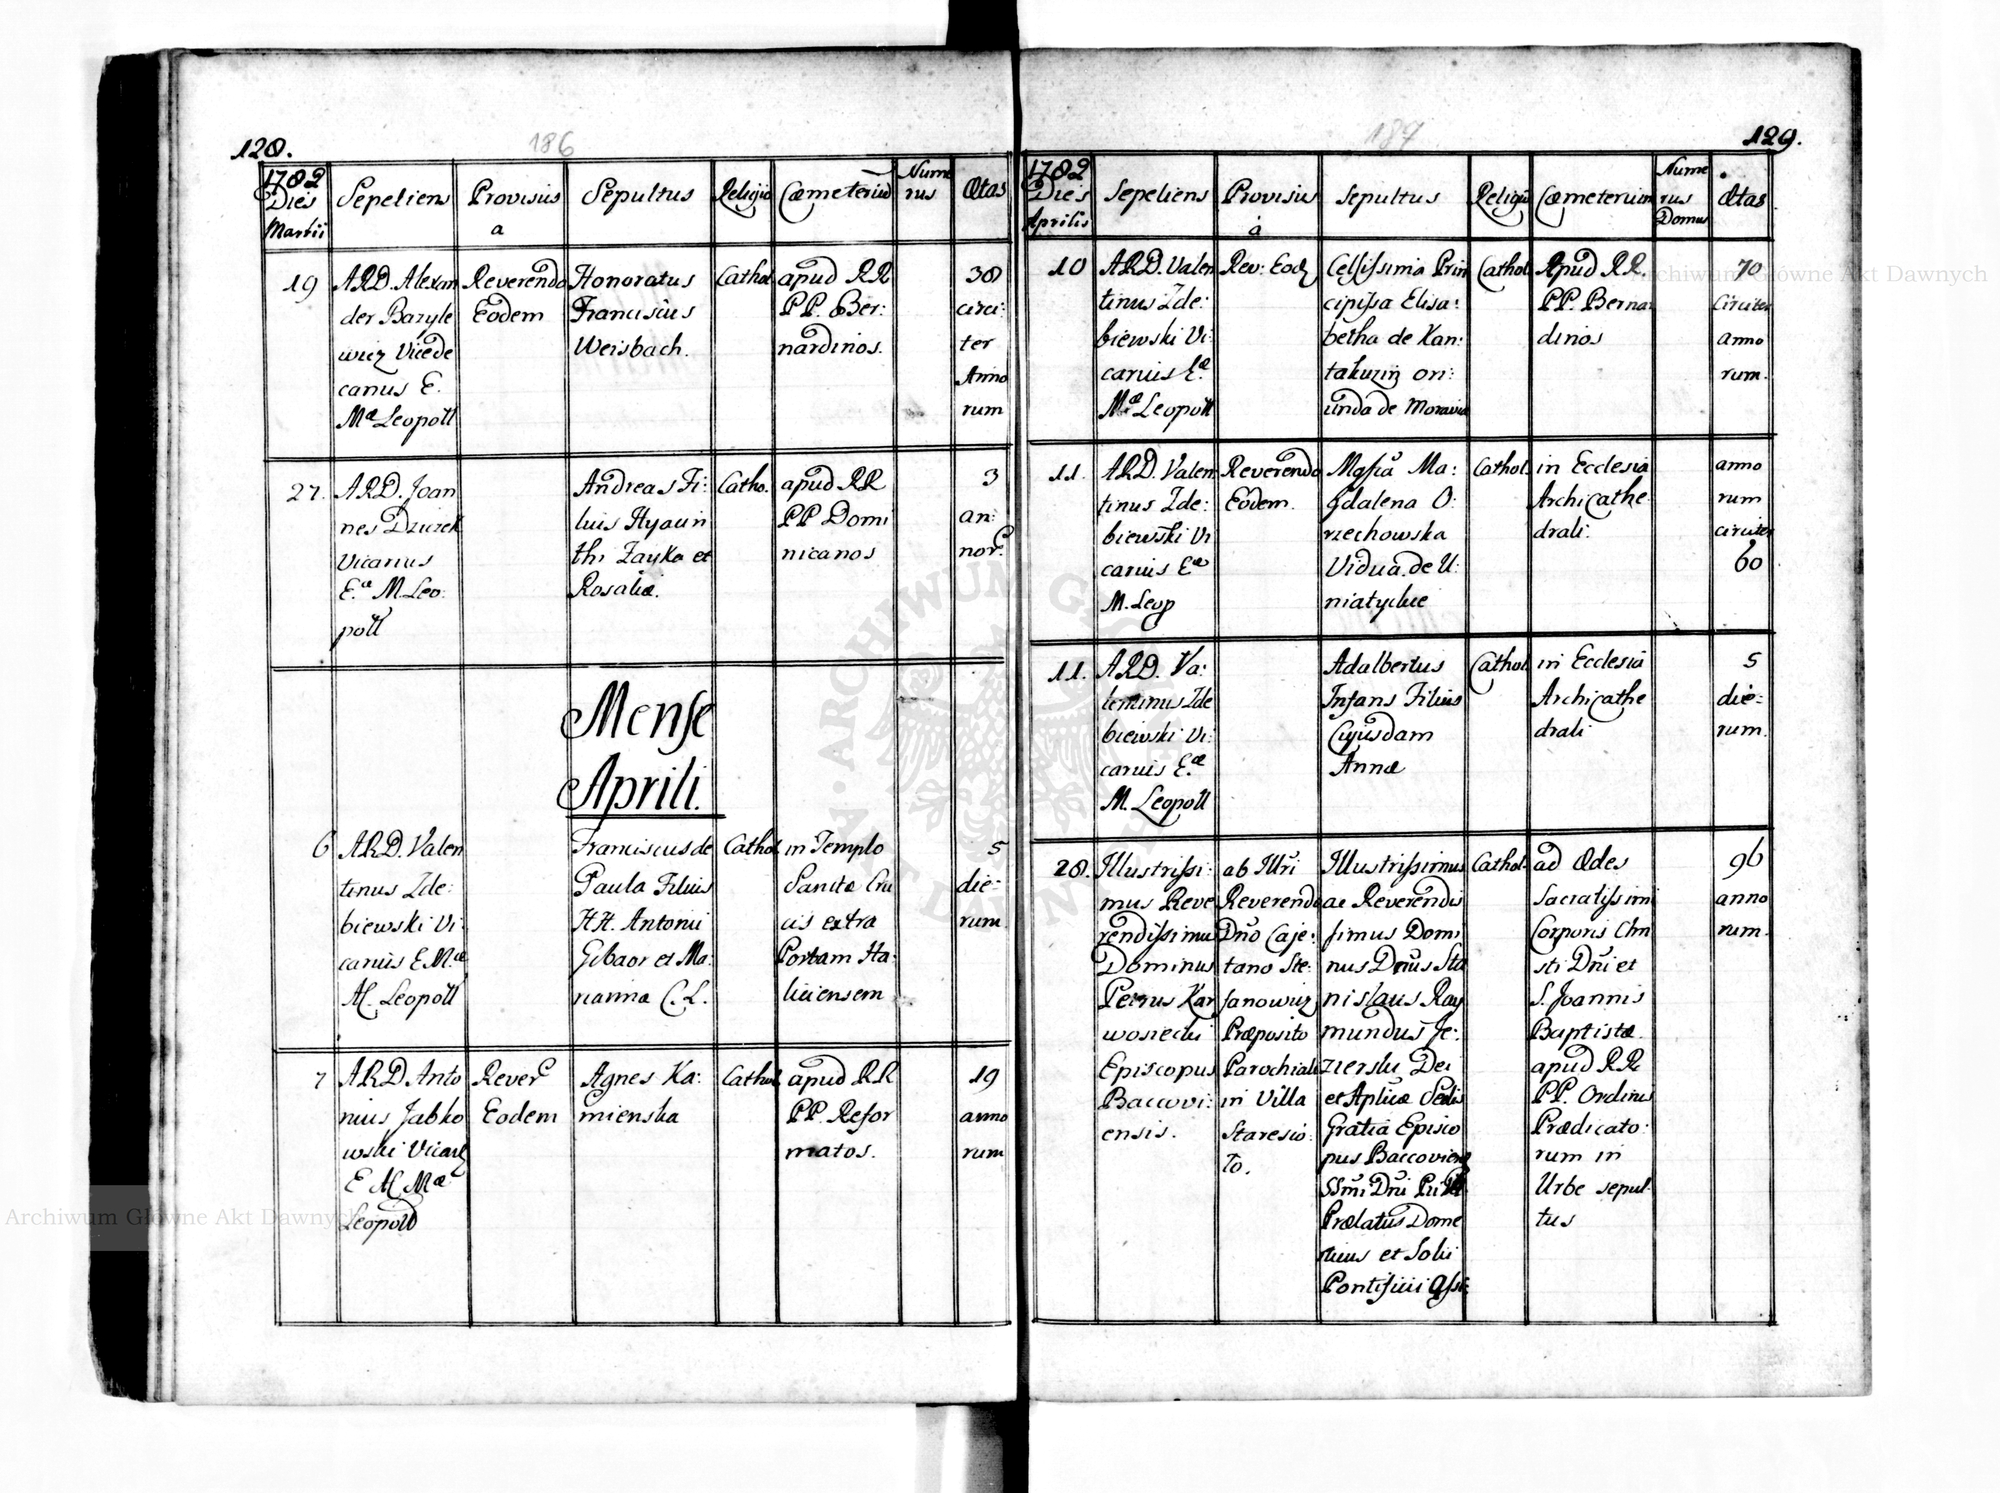 128.
186
1782
Dies
Martii
Sepeliens
Provisus
a
Sepultus
Religio
Cæmeterium
Nume
rus
Ætas
19
ARD. Alexan
der Bazyle
wicz Vicede
canus E.
Mæ Leopoll
Reverendo
Eodem
Honoratus
Franciscus
Weisbach.
Cathol
apud RR
PP. Ber:
nardinos.
38
circi:
ter
Anno
rum
27.
ARD. Joan
nes Dziurzek
Vicarius
E.æ M. Leo:
poll
Andreas Fi:
lius Hyacin
thi Zayka et
Rosaliæ.
Catho.
apud RR
PP Domi
nicanos
3
an:
nor.
Mense
Aprili.
6
ARD. Valen
tinus Zde:
biewski Vi:
carius E M.æ
M. Leopoll
Franciscus de
Paula Filius
HH. Antonii
Gibaor et Ma:
rianna C. L.
Cathol
in Templo
Sanctæ Cru
cis extra
Portam Ha:
liciensem
5
die=
rum
7
ARD. Anto
nius Jabko
wski Vicari
E M. Mæ
Leopoll
Rever
Eodem
Agnes Ka:
mienska
Cathol
apud RR
PP. Refor
matos.
19
anno
rum
187
129.
1782
Dies
Aprilis
Sepeliens
Provisus
a
Sepultus
Religio
Cæmeterium
Nume
rus
Domus
Ætas
10
ARD. Valen
tinus Zde:
biewski Vi:
carius E.æ
Mæ Leopoll
Rev: Eod
Celsissima Prin
cipissa Elisa:
betha de Kan:
takuzin ori:
unda de Moravia
Cathol
Apud RR.
PP. Bernar
dinos
70
Circiter
anno
rum.
11.
ARD. Valen
tinus Zde:
biewski Vi
carius Eæ
M. Leop
Reverendo
Eodem.
Mgfca Ma:
gdalena O:
rzechowska
Vidua. de U:
niatyckie
Cathol.
in Ecclesia
Archicathe
drali.
anno
rum
circiter
60
11.
ARD. Va:
lentinus Zde
biewski Vi:
carius E.æ
M. Leopoll
Adalbertus
Infans Filius
Cujusdam
Annæ
Cathol.
in Ecclesia
Archicathe
drali
5
die=
rum.
28.
Illustrissi:
mus Reve
rendissimus
Dominus
Petrus Kar
wosiecki
Episcopus
Baccovi:
ensis.
ab Illri
Reverendo
Dno Caje:
tano Ste:
fanowicz
Præposito
Parochiali
in Villa
Staresio:
To.
Illustrissimus
ac Reverendis
simus Domi
nus Dnus Sta
nislaus Ray
mundus Je:
zierski Dei
et Aplicæ Sedis
Gratia Episco
pus Baccoviens
SSmi Dni
Prælatus Dome
sticus et Solii
Pontificii Assi
Cathol.
ad Ædes
Sacratissimi
Corporis Chri
sti Dni et
S. Joannis
Baptistæ.
apud RR
PP. Ordinis
Prædicato:
rum in
Urbe sepul
tus
96
anno
rum.
Archiwum Główne Akt Dawnych
Archiwum Główne Akt Dawnych